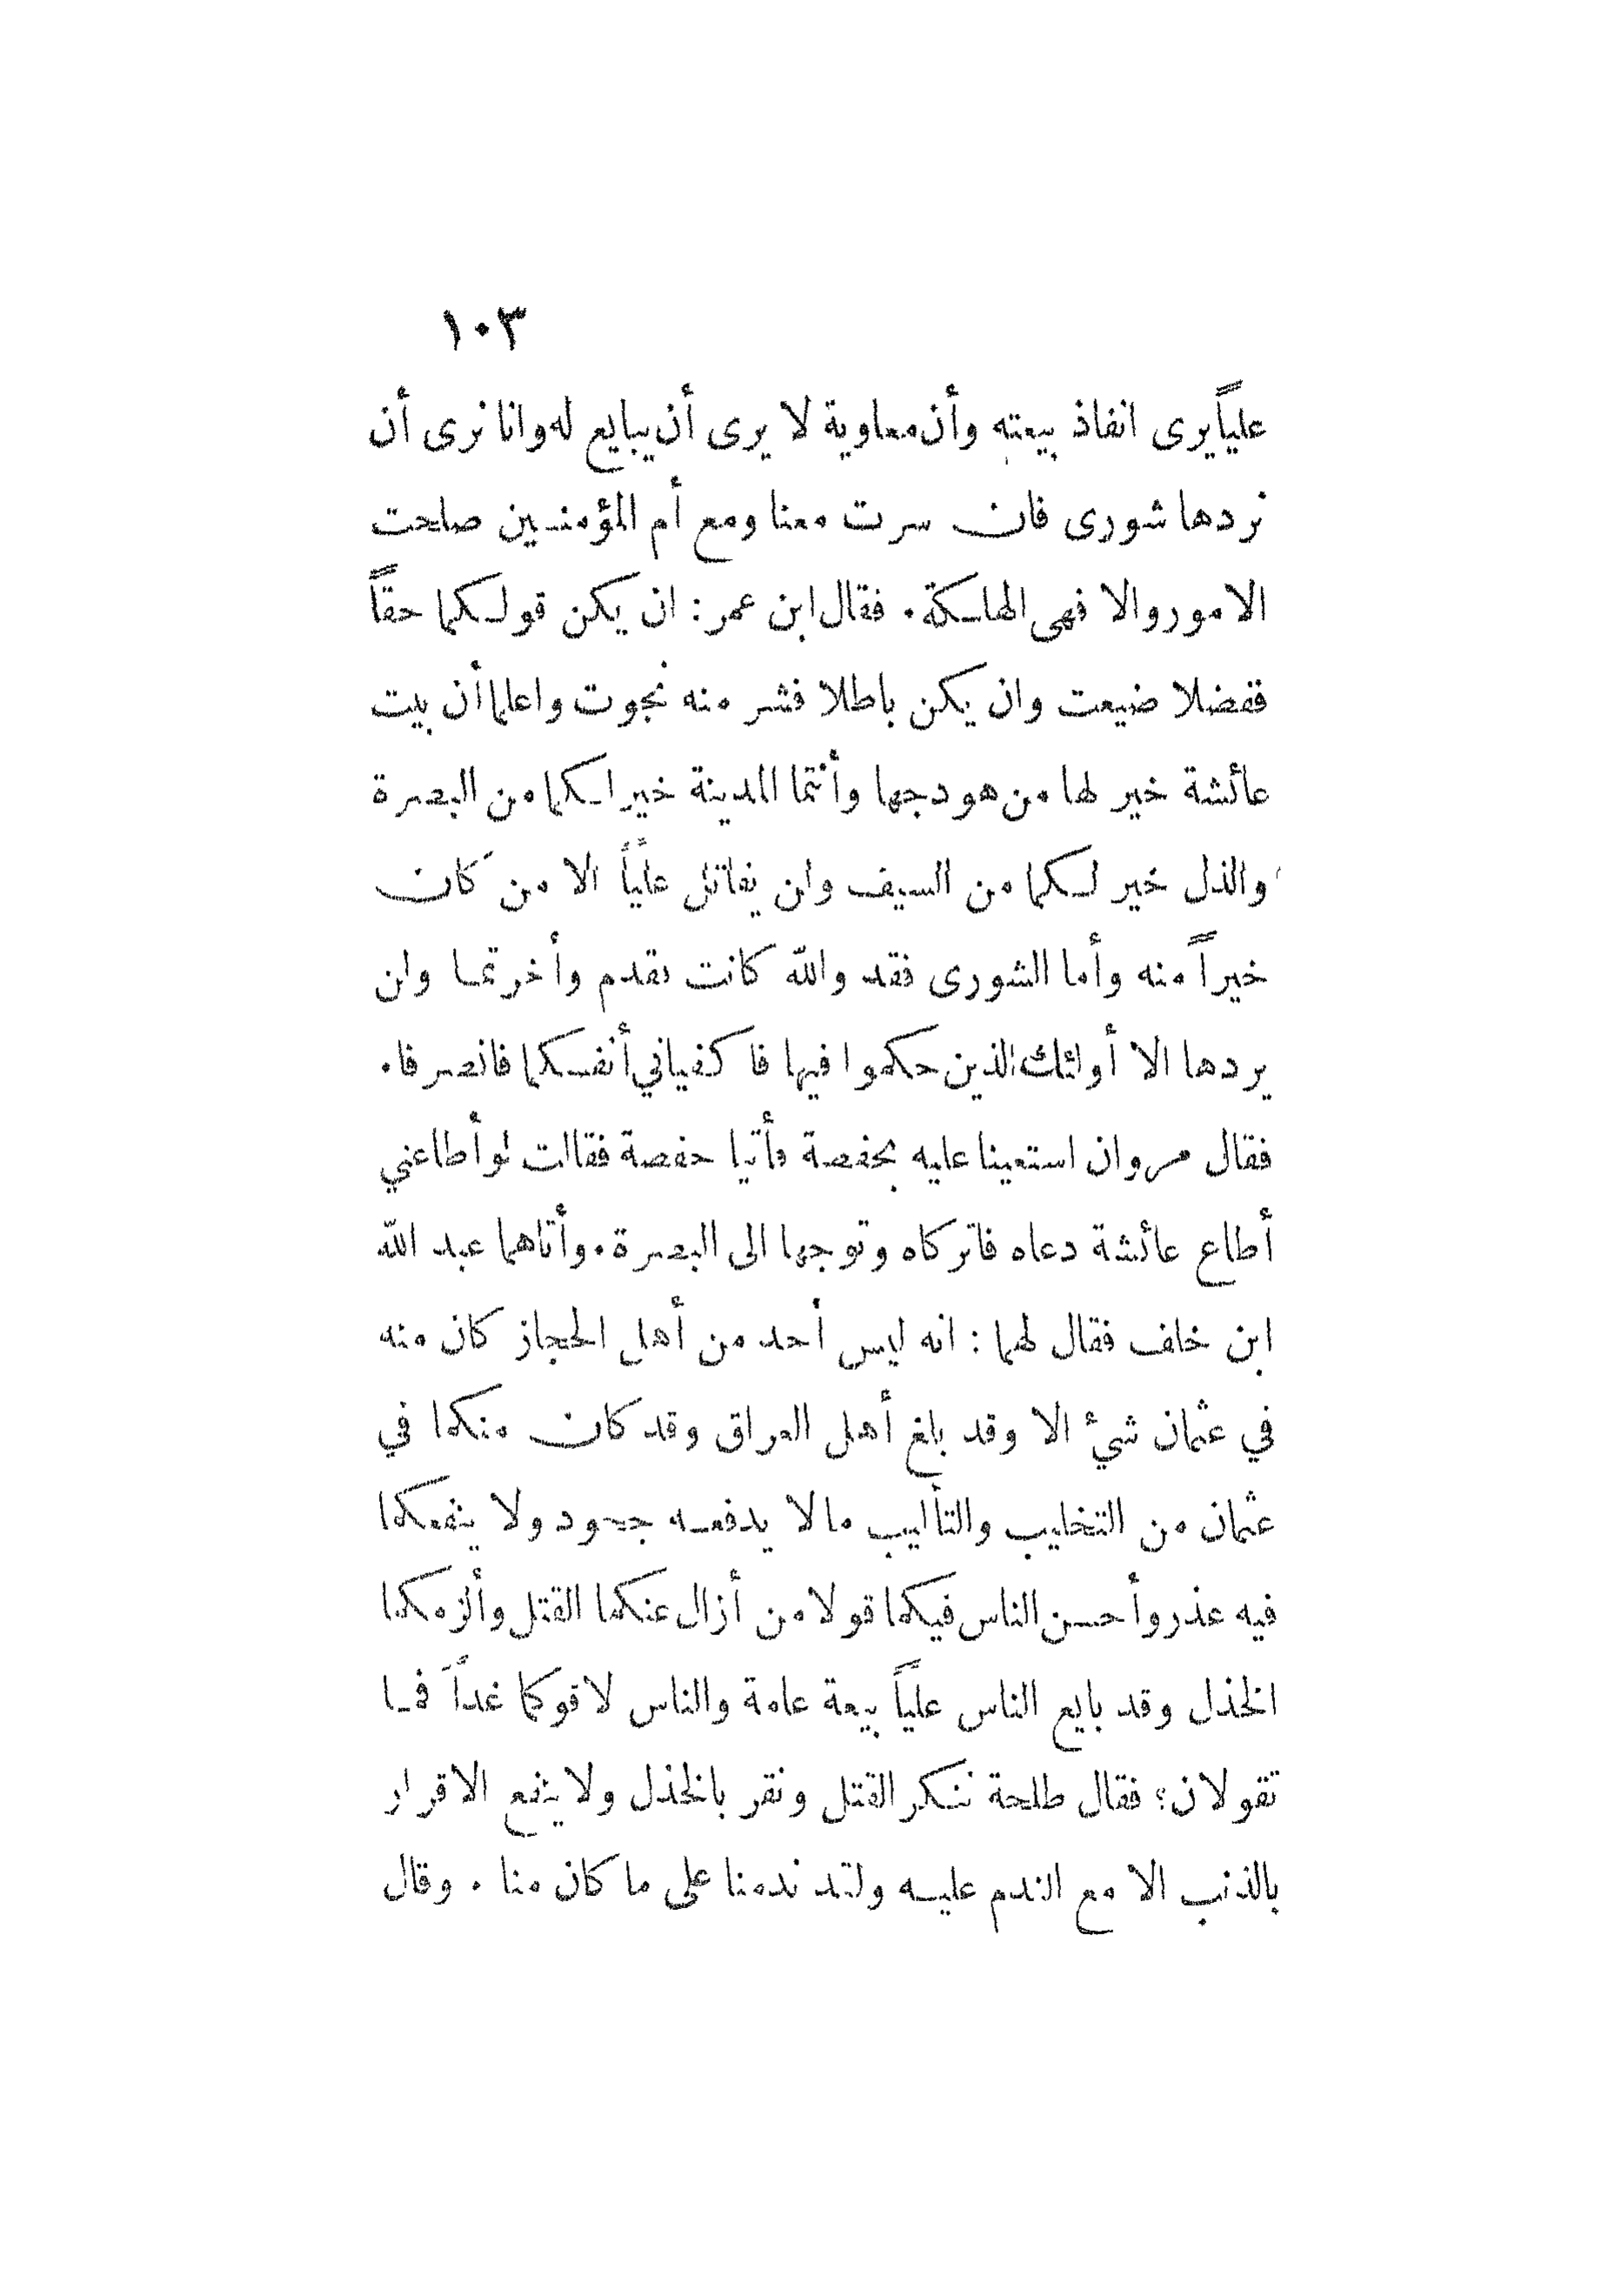 ١٠٣
علياً يرى انفاذ بيعته وأن معاوية لا يرى أن يبايع له وانا نرى أن
نردها شورى فان سرت معنا ومع أم المؤمنين صلحت
الامور والا فهي الهلكة . فقال ابن عمر : ان يكن قولكما حقاً
ففضلا ضيعت وان يكن باطلا فشر منه نجوت واعلما أن بيت
عائشة خير لها من هودجها وأنتما المدينة خير لكما من البصرة
والذل خير لكما من السيف ولن يقاتل علياً الا من كان
خيراً منه وأما الشورى فقد والله كانت تقدم وأخرتما ولن
يردها الا أولئك الذين حكموا فيها فاكفياني أنفسكما فانصرفا .
فقال مروان استعينا عليه بحفصة فأتيا حفصة فقالت لو أطاعني
أطاع عائشة دعاه فاتركاه وتوجها الى البصرة . وأتاهما عبد الله
ابن خلف فقال لهما : انه ليس أحد من أهل الحجاز كان منه
في عثمان شيء الا وقد بلغ أهل العراق وقد كان منكما في
عثمان من التخليب والتأليب ما لا يدفعه جحود ولا ينفعكما
فيه عذر وأحسن الناس فيكما قولا من أزال عنكما القتل وألزمكما
الخذل وقد بايع الناس علياً بيعة عامة والناس لاقوكما غداً فما
تقولان ؟ فقال طلحة ننكر القتل ونقر بالخذل ولا ينفع الاقرار
بالذنب الا مع الندم عليه ولقد ندمنا على ما كان منا . وقال